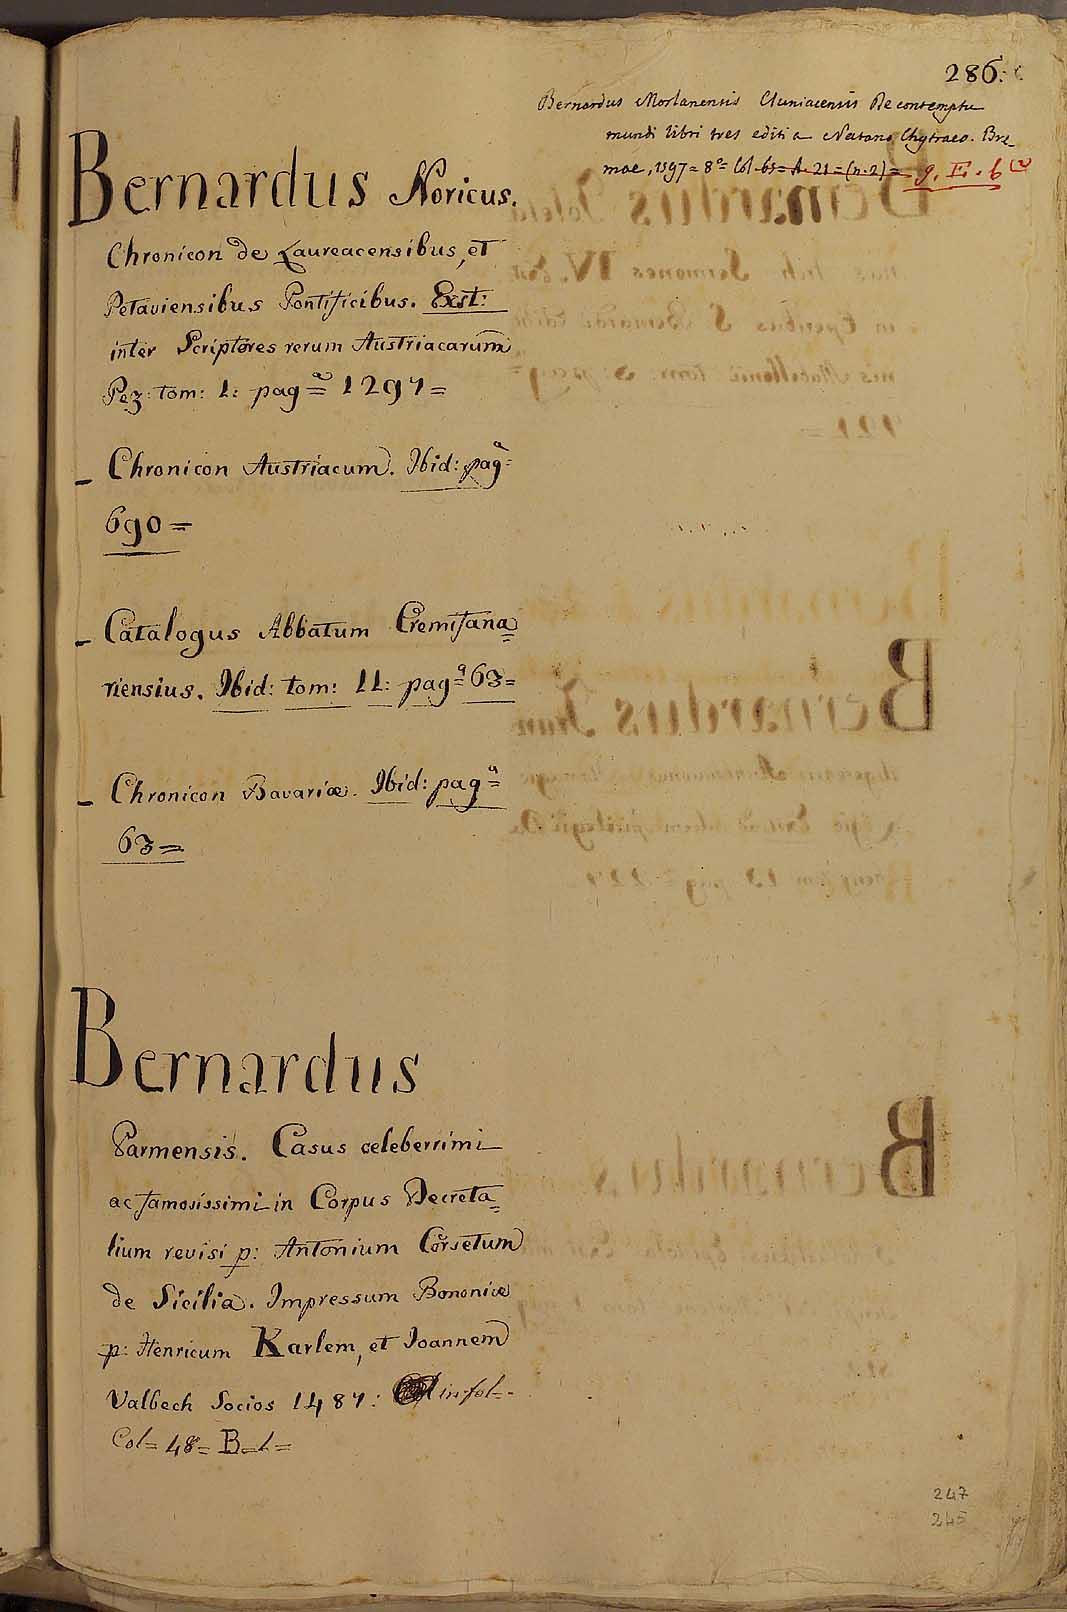 286:
Bernardus Morlanensis Cluniacensis De contemptu
mundi libri tres editi a Natano Chytraeo. Bre_
mae, 1597 = 8º = Col. 65 = A. 21 = (n. 2) = 9. E. 6 (2
Bernardus Noricus.
Chronicon de Laureacensibus, et
Petaviensibus Pontificibus. Exst:
inter Scriptores rerum Austriacarum
Pez: tom: 1: pagª= 1297=
_ Chronicon Austriacum. Ibid: pagª=
690=
_ Catalogus Abbatum Cremifana=
riensius. Ibid: tom: 11: pagª= 63=
_ Chronicon Bavariæ. Ibid: pagª=
63=
Bernardus
Parmensis. Casus celeberrimi
ac famosissimi in Corpus Decreta=
lium revisi p: Antonium Corsetum
de Sicilia. Impressum Bononiæ
p: Henricum Karlem, et Joannem
Valbech Socios 1487: in fol=.
Col= 48= B=1=
247
245